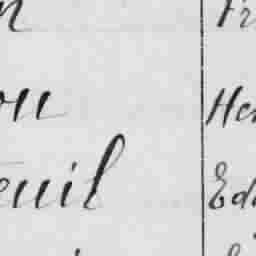 n Fr
ou Hen
euil Ed